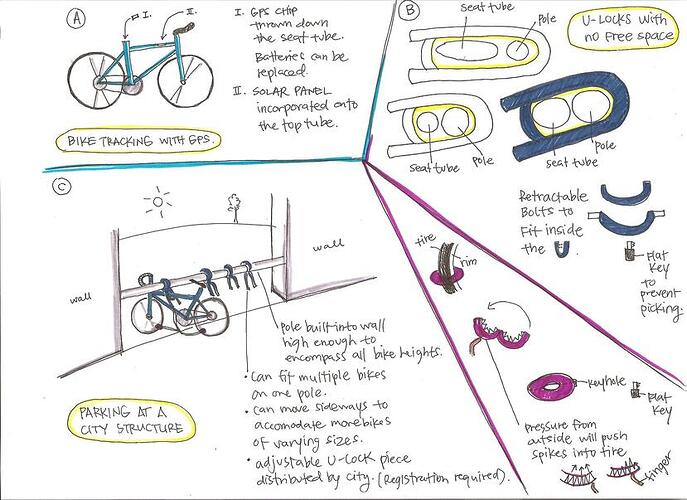 A
I.
II.
I. GPS CHIP
thrown down
the seat tube.
Batteries can be
replaced.
II. SOLAR PANEL
incorporated onto
the top tube.
BIKE TRACKING WITH GPS.
B
U-LOCKS with
no free space
seat tube
pole
seat tube
pole
seat tube
pole
Retractable
Bolts to
Fit inside
the
Flat
Key
to
prevent
picking.
C
wall
wall
pole built into wall
high enough to
encompass all bike heights.
• Can fit multiple bikes
on one pole.
• can move sideways to
accomodate more bikes
of varying sizes.
• adjustable U-Lock piece
distributed by city. (Registration required).
PARKING AT A
CITY STRUCTURE
tire
rim
keyhole
Flat
Key
Pressure from
outside will push
spikes into tire
finger